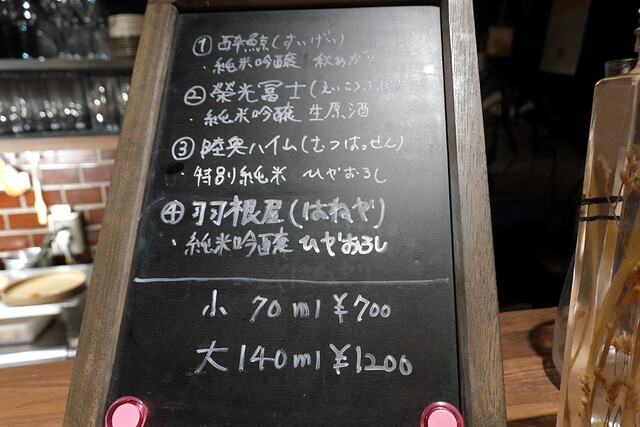 ① 酔鯨(すいげい)
・純米吟醸 秋あがり
② 榮光冨士(えいこうふじ)
・純米吟醸 生原酒
③ 陸奥ハイム(むつはっせん)
・特別純米 ひやおろし
④ 羽根屋(はねや)
・純米吟醸 ひやおろし
小 70ml ¥700
大 140ml ¥1200